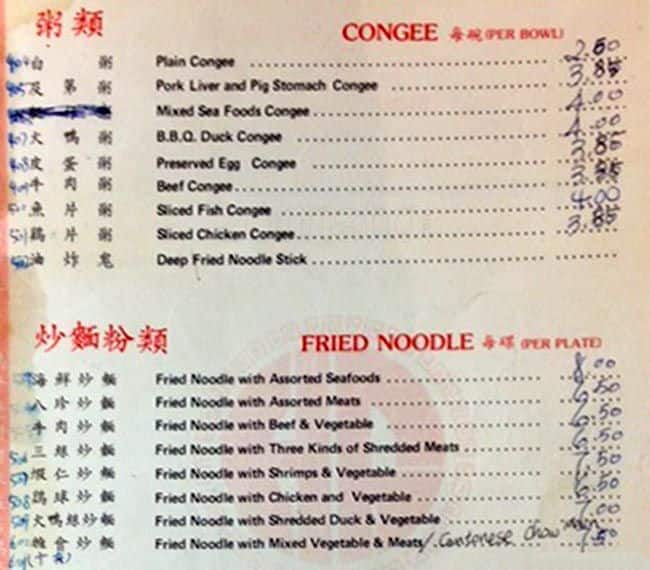 粥類 CONGEE 每碗 (PER BOWL)
白粥 Plain Congee 2.50
405 及第粥 Pork Liver and Pig Stomach Congee 3.85
Mixed Sea Foods Congee 4.00
407 火鴨粥 B.B.Q. Duck Congee 4.00
408 皮蛋粥 Preserved Egg Congee 3.85
409 牛肉粥 Beef Congee
魚片粥 Sliced Fish Congee 4.00
501 鷄片粥 Sliced Chicken Congee 3.85
油炸鬼 Deep Fried Noodle Stick
炒麵粉類 FRIED NOODLE 每碟 (PER PLATE)
海鮮炒麵 Fried Noodle with Assorted Seafoods 8.00
八珍炒麵 Fried Noodle with Assorted Meats 6.50
牛肉炒麵 Fried Noodle with Beef & Vegetable 6.50
三絲炒麵 Fried Noodle with Three Kinds of Shredded Meats 6.50
蝦仁炒麵 Fried Noodle with Shrimps & Vegetable 7.50
508 鷄球炒麵 Fried Noodle with Chicken and Vegetable 6.50
火鴨絲炒麵 Fried Noodle with Shredded Duck & Vegetable 7.00
雜會炒麵 Fried Noodle with Mixed Vegetable & Meats / Cantonese Chow Mein 7.50